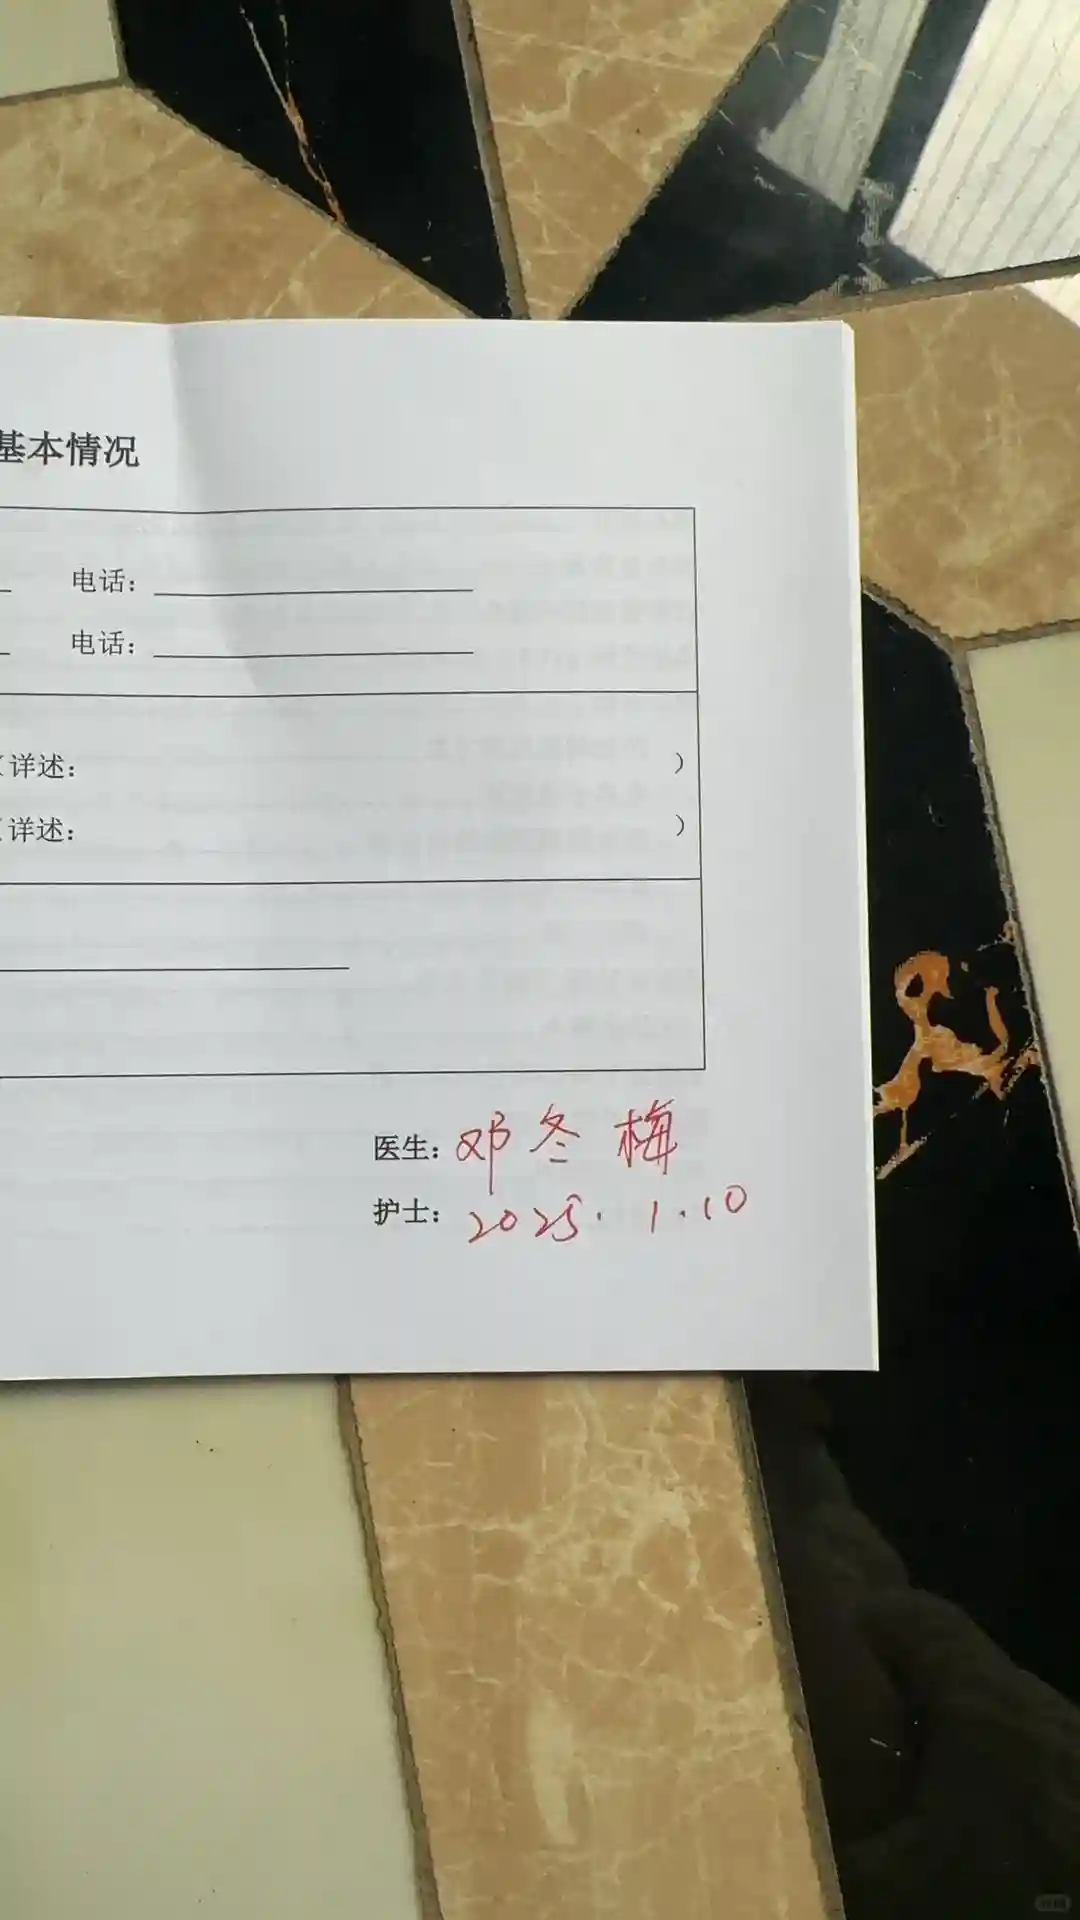 基本情况
电话：
电话：
（详述： ）
（详述： ）
医生：邓冬梅
护士：2025.1.10